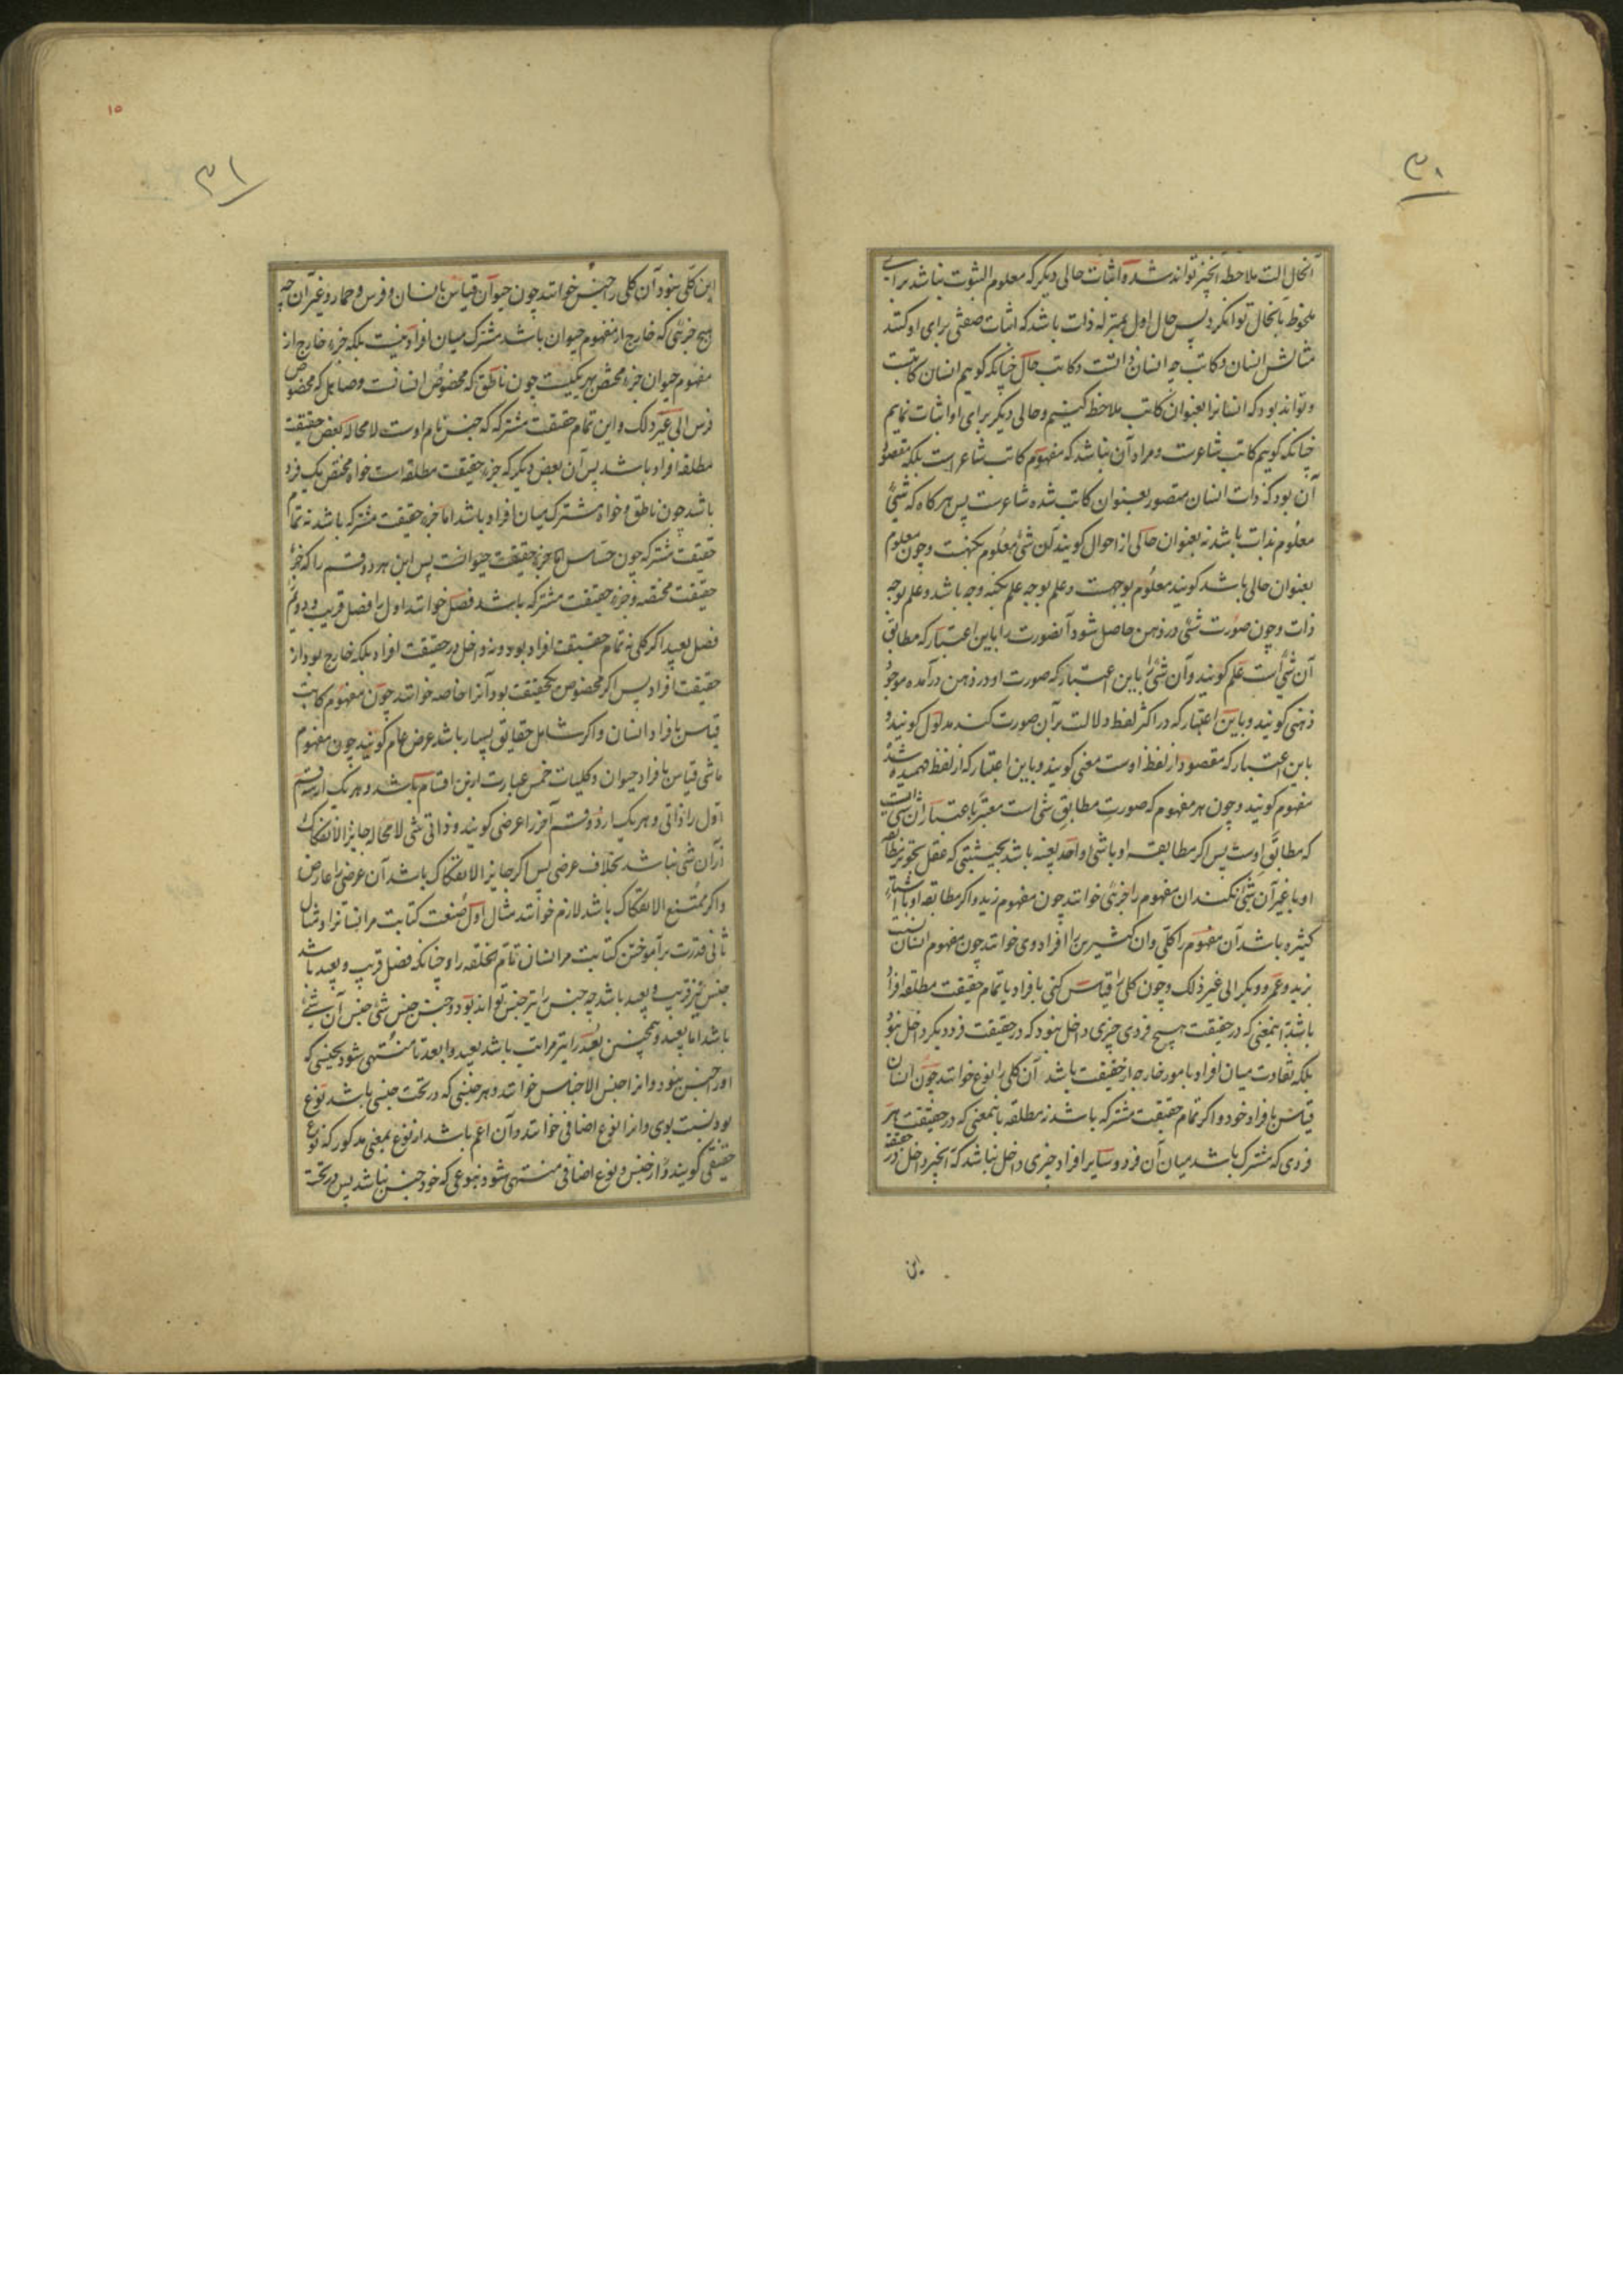 ۳۰
آنحال الت ملاحظه آنچیز تواند شد و اثبات حالی دیگر که معلوم الثبوت نباشد برای
ملحوظ بآنحال توان کرد پس حال اول بمنزله ذات باشد که اثبات صفتی برای او کنند
مثالش انسان و کاتب چه انسان ذاتست و کاتب حال چنانکه گوییم انسان کاتبست
و تواند بود که انسانرا بعنوان کاتب ملاحظه کنیم و حالی دیگر برای او اثبات نماییم
چنانکه گوییم کاتب شاعرست و مراد آن نباشد که مفهوم کاتب شاعر است بلکه مقصود
آن بود که ذات انسان متصور بعنوان کاتب شده شاعرست پس هر گاه که شیئ
معلوم بذات باشد نه بعنوان حالی از احوال گویند آن شئ معلوم بکنهست و چون معلوم
بعنوان حالی باشد گویند معلوم بوجهست و علم بوجه علم بکنه وجه باشد و علم بوجه
ذات و چون صورت شئی در ذهن حاصل شود آنصورت را باین اعتبار که مطابق
آن شئ است علم گویند و آن شئ را باین اعتبار که صورت او در ذهن درآمده موجود
ذهنی گویند و باین اعتبار که در اکثر لفظ دلالت بر آن صورت کند مدلول گویند و
باین اعتبار که مقصود از لفظ اوست معنی گویند و باین اعتبار که از لفظ فهمیده شد
مفهوم گویند و چون هر مفهوم که صورت مطابق شئ است معتبر باعتبار آن شئ است
که مطابق اوست پس اگر مطابقه او با شئ واحد بعینه باشد بحیثیتی که عقل تجویز مطابقه
او با غیر آن شئ نکند آن مفهوم را جزئی خوانند چون مفهوم زید و اگر مطابقه او با اشیاء
کثیره باشد آن مفهوم را کلی و آن کثیرین را افراد وی خوانند چون مفهوم انسان نسبت
بزید و عمرو و بکر الی غیر ذلک و چون کلی را قیاس کنی بافراد یا تمام حقیقت مطلقه افراد
باشد باینمعنی که در حقیقت هیچ فردی چیزی داخل نبود که در حقیقت فرد دیگر داخل نبود
بلکه تفاوت میان افراد بامور خارجه از حقیقت باشد آن کلی را نوع خوانند چون انسان
قیاس بافراد خود و اگر تمام حقیقت مشترکه باشد نه مطلقه باینمعنی که در حقیقت هر
فردی که مشترک باشد میان آن فرد و سایر افراد چیزی داخل نباشد که آنچیز داخل در حقیقة
این
۱۵
۳۱
این کلی نبود آن کلی را جنس خوانند چون حیوان قیاس بانسان و فرس و حمار و غیر آن چه
هیچ جزئی که خارج از مفهوم حیوان باشد مشترک میان افراد نیست بلکه جزء خارج از
مفهوم حیوان جزء مختص بهر یکیست چون ناطق که مخصوص انسانست و صاهل که مخصوص
فرس الی غیر ذلک و این تمام حقیقت مشترکه که جنس نام اوست لا محاله بعض حقیقت
مطلقه افراد باشد پس آن بعض دیگر که جزء حقیقت مطلقه است خواه مختص بیک فرد
باشد چون ناطق و خواه مشترک میان افراد باشد اما جزء حقیقت مشترکه باشد نه تمام
حقیقت مشترکه چون حساس که جزء حقیقت حیوانست پس این هر دو قسم را که جزء
حقیقت مختصه و جزء حقیقت مشترکه باشد فصل خوانند اول را فصل قریب و دویم را
فصل بعید و اگر کلی نه تمام حقیقت افراد بود و نه داخل در حقیقت افراد بلکه خارج بود از
حقیقت افراد پس اگر مخصوص بیکحقیقت بود آنرا خاصه خوانند چون مفهوم کاتب
قیاس بافراد انسان و اگر شامل حقایق بسیار باشد عرض عام گویند چون مفهوم
ماشی قیاس بافراد حیوان و کلیات خمس عبارت ازین اقسام باشد و هر یک از سه قسم
اول را ذاتی و هر یک از دو قسم آخر را عرضی گویند و ذاتی شئی لا محاله جایز الانفکاک
از آن شئ نباشد بخلاف عرضی پس اگر جایز الانفکاک باشد آن عرضی را عارض
و اگر ممتنع الانفکاک باشد لازم خوانند مثال اول صنعت کتابت مر انسانرا و مثال
ثانی قدرت بر آموختن کتابت مر انسان تام الخلقه را و چنانکه فصل قریب و بعید باشد
جنس نیز قریب و بعید باشد چه جنس را نیز جنس تواند بود و جنس جنس شئ جنس آن شئ
باشد اما بعید و همچنین بعید را نیز مراتب باشد بعید و ابعد تا منتهی شود بجنسی که
او را جنس نبود و آنرا جنس الاجناس خوانند و هر جنسی که در تحت جنسی باشد نوع
بود نسبت بوی و آنرا نوع اضافی خوانند و آن اعم باشد از نوع بمعنی مذکور که نوع
حقیقی گویند و از جنس و نوع اضافی منتهی شود بنوعی که خود جنس نباشد پس در تحت